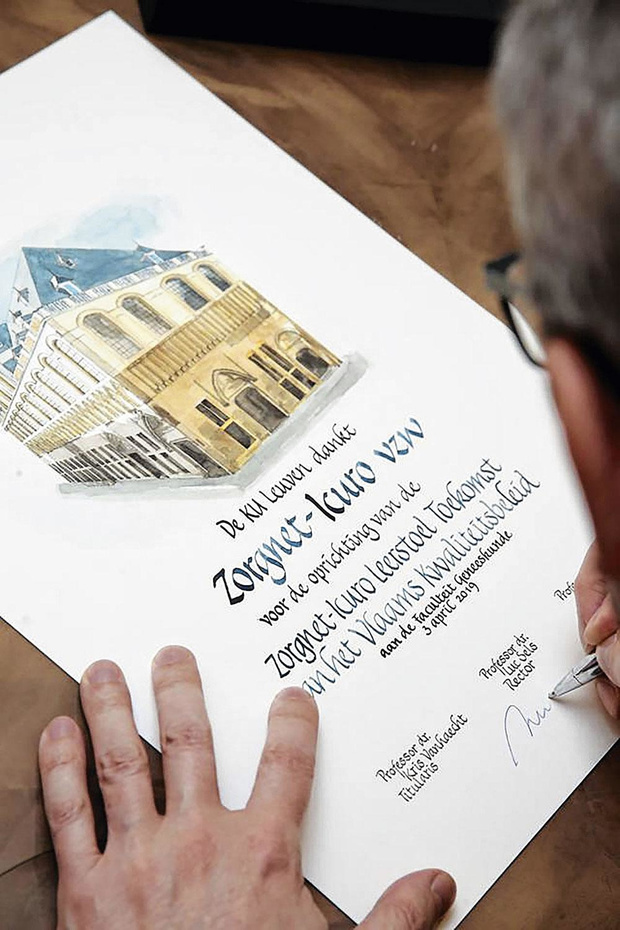 De KU Leuven dankt
Zorgnet-Icuro vzw
voor de oprichting van de
Zorgnet-Icuro Leerstoel Toekomst
an het Vlaams Kwaliteitsbeleid
aan de Faculteit Geneeskunde
3 april 2019
Professor dr.
Kris Vanhaecht
Titularis
Professor dr.
Luc Sels
Rector